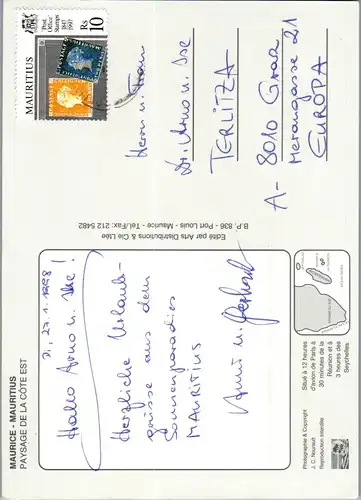 MAURICE - MAURITIUS
PAYSAGE DE LA CÔTE EST
, 27.1.1998
Hallo Arno u. Ilse!
Herzliche Urlaubs-
grüsse aus dem
Sonnenparadies
MAURITIUS
u. Gerhard
Situé à 12 heures
d'avion de Paris à
30 minutes de la
Réunion et à
3 heures des
Seychelles.
Photographie & Copyright
J. C. Nourault
Reproduction interdite
Edité par Arts Distributions & Cie Ltée
B.P. 836 - Port Louis - Maurice - Tel./Fax: 212 5482
MAURITIUS
Post Office Stamps
1847
1997
Rs 10
POSTAGE
POSTAGE
Herrn u. Frau
Dr. Arno u. Ilse
TERLITZA
A- 8010 Graz
Merangasse 21
EUROPA